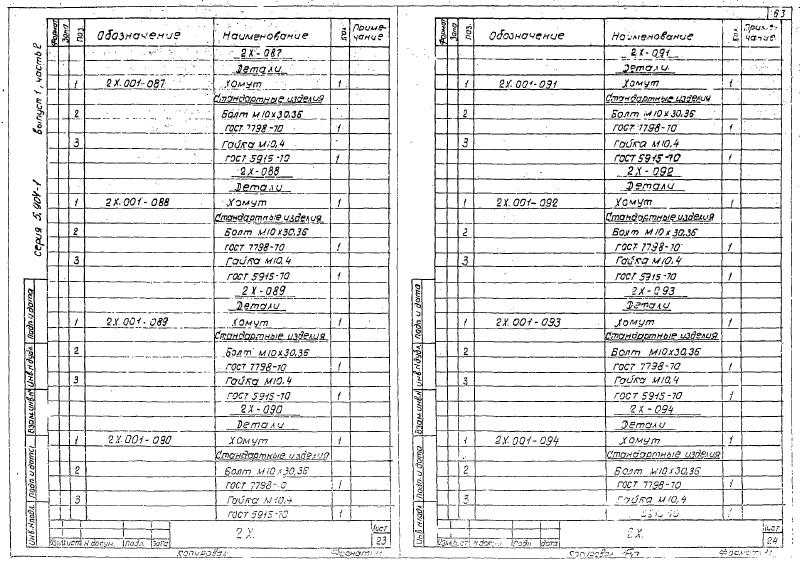 63
Серия 5.904-1 выпуск 1, часть 2
Формат Зона Поз. Обозначение Наименование Кол. Приме-чание
2Х-087
Детали
1 2Х.001-087 Хомут 1
Стандартные изделия
2 Болт М10х30,36
ГОСТ 7798-70 1
3 Гайка М10,4
ГОСТ 5915-70 1
2Х-088
Детали
1 2Х.001-088 Хомут 1
Стандартные изделия
2 Болт М10х30,36
ГОСТ 7798-70 1
3 Гайка М10,4
ГОСТ 5915-70 1
2Х-089
Детали
1 2Х.001-089 Хомут 1
Стандартные изделия
2 Болт М10х30,36
ГОСТ 7798-70 1
3 Гайка М10,4
ГОСТ 5915-70 1
2Х-090
Детали
1 2Х.001-090 Хомут 1
Стандартные изделия
2 Болт М10х30,36
ГОСТ 7798-70 1
3 Гайка М10,4
ГОСТ 5915-70 1
Инв.№подл. Подп. и дата Взам.инв.№ Инв.№дубл. Подп. и дата
Изм. Лист № докум. Подп. Дата
2Х.
Лист
23
Копировал Формат 11
Формат Зона Поз. Обозначение Наименование Кол. Приме-чание
2Х-091
Детали
1 2Х.001-091 Хомут 1
Стандартные изделия
2 Болт М10х30,36
ГОСТ 7798-70 1
3 Гайка М10,4
ГОСТ 5915-70 1
2Х-092
Детали
1 2Х.001-092 Хомут 1
Стандартные изделия
2 Болт М10х30,36
ГОСТ 7798-70 1
3 Гайка М10,4
ГОСТ 5915-70 1
2Х-093
Детали
1 2Х.001-093 Хомут 1
Стандартные изделия
2 Болт М10х30,36
ГОСТ 7798-70 1
3 Гайка М10,4
ГОСТ 5915-70 1
2Х-094
Детали
1 2Х.001-094 Хомут 1
Стандартные изделия
2 Болт М10х30,36
ГОСТ 7798-70 1
3 Гайка М10,4
5915-70 1
Инв.№подл. Подп. и дата Взам.инв.№ Инв.№дубл. Подп. и дата
Изм. Лист № докум. Подп. Дата
2Х.
Лист
24
Копировал Формат 11